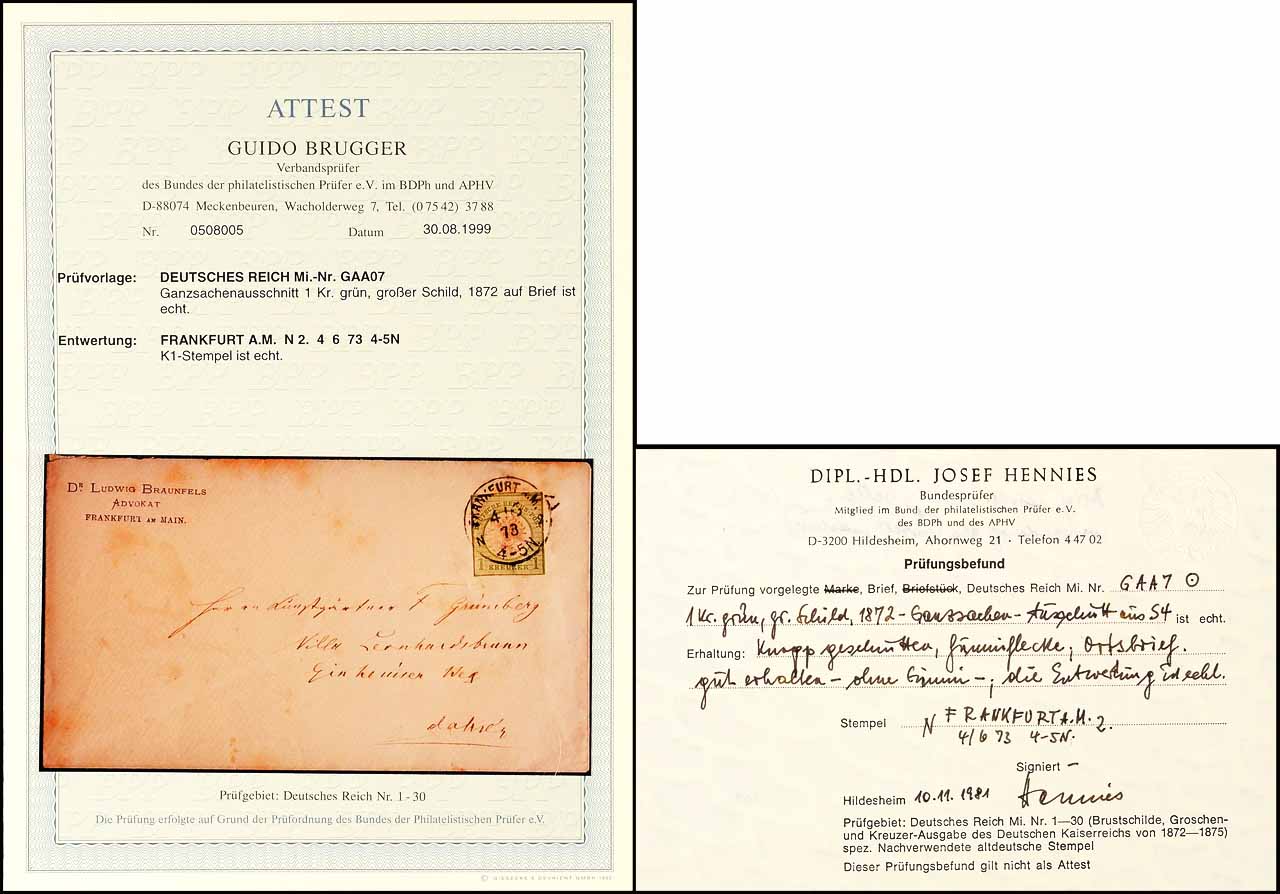 ATTEST
GUIDO BRUGGER
Verbandsprüfer
des Bundes der philatelistischen Prüfer e.V. im BDPh und APHV
D-88074 Meckenbeuren, Wacholderweg 7, Tel. (0 75 42) 37 88
Nr. 0508005 Datum 30.08.1999
Prüfvorlage: DEUTSCHES REICH Mi.-Nr. GAA07
Ganzsachenausschnitt 1 Kr. grün, großer Schild, 1872 auf Brief ist
echt.
Entwertung: FRANKFURT A.M. N 2. 4 6 73 4-5N
K1-Stempel ist echt.
DR LUDWIG BRAUNFELS
ADVOKAT
FRANKFURT AM MAIN.
FRANKFURT A.M.
4 6
73
4-5N
1 KREUZER 1
Herrn Kunstgärtner F. Grünsberg
Villa Leonhardsbrunn
Ginheimer Weg
dahier
Prüfgebiet: Deutsches Reich Nr. 1-30
Die Prüfung erfolgte auf Grund der Prüfordnung des Bundes der Philatelistischen Prüfer e.V.
© GIESECKE & DEVRIENT GMBH
DIPL.-HDL. JOSEF HENNIES
Bundesprüfer
Mitglied im Bund der philatelistischen Prüfer e.V.
des BDPh und des APHV
D-3200 Hildesheim, Ahornweg 21 · Telefon 4 47 02
Prüfungsbefund
Zur Prüfung vorgelegte Marke, Brief, Briefstück, Deutsches Reich Mi. Nr. GAA7 ⊙
1 Kr. grün, gr. Schild, 1872 - Ganzsachen-Ausschnitt aus S4 ist echt.
Erhaltung: Knapp geschnitten, Gummiflecke, Ortsbrief.
gut erhalten - ohne Gummi -; die Entwertung ist echt.
Stempel N FRANKFURT A.M. 2.
4/6 73 4-5N.
Signiert –
Hildesheim 10.11.1981 Hennies
Prüfgebiet: Deutsches Reich Mi. Nr. 1—30 (Brustschilde, Groschen-
und Kreuzer-Ausgabe des Deutschen Kaiserreichs von 1872—1875)
spez. Nachverwendete altdeutsche Stempel
Dieser Prüfungsbefund gilt nicht als Attest